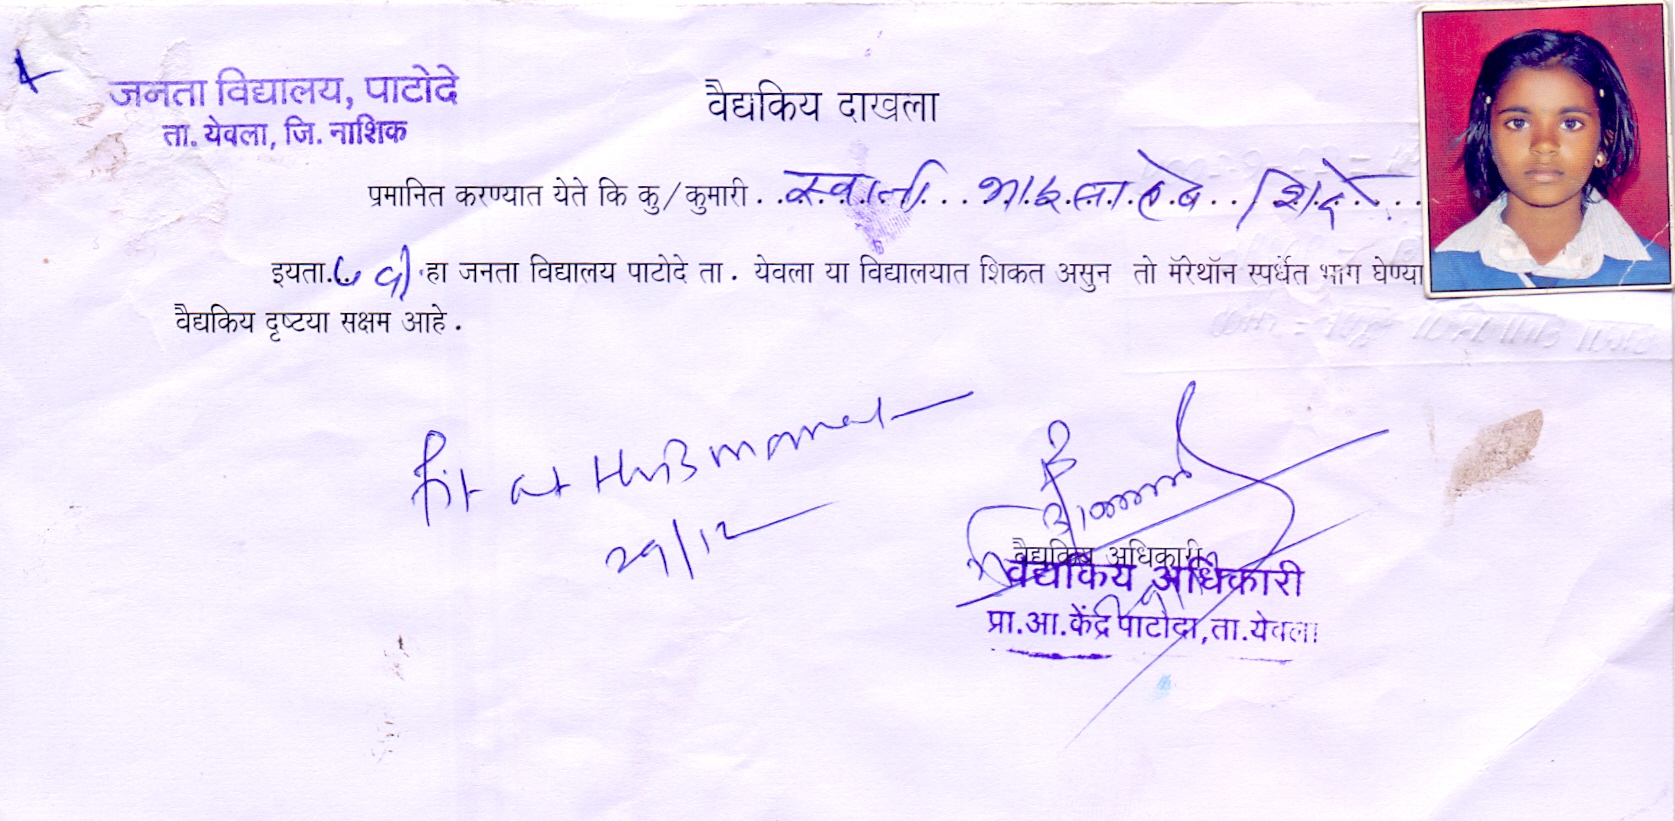 जनता विद्यालय, पाटोदे
ता. येवला, जि. नाशिक
वैद्यकिय दाखला
प्रमानित करण्यात येते कि कु/कुमारी . . स्वाती . . . भाऊसाहेब . . शिंदे . . . .
इयता. ७ वी . हा जनता विद्यालय पाटोदे ता . येवला या विद्यालयात शिकत असुन तो मॅरेथॉन स्पर्धेत भाग घेण्या
वैद्यकिय दृष्टया सक्षम आहे .
fit at this moment
29/12
वैद्यकिय अधिकारी
वैद्यकिय अधिकारी
प्रा.आ.केंद्र पाटोदा, ता.येवला